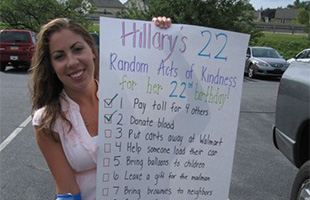 Hillary's 22
Random Acts of Kindness
for her 22nd birthday!
1 Pay toll for 4 others
2 Donate blood
3 Put carts away at Walmart
4 Help someone load their car
5 Bring balloons to children
6 Leave a gift for the mailman
7 Bring brownies to neighbors